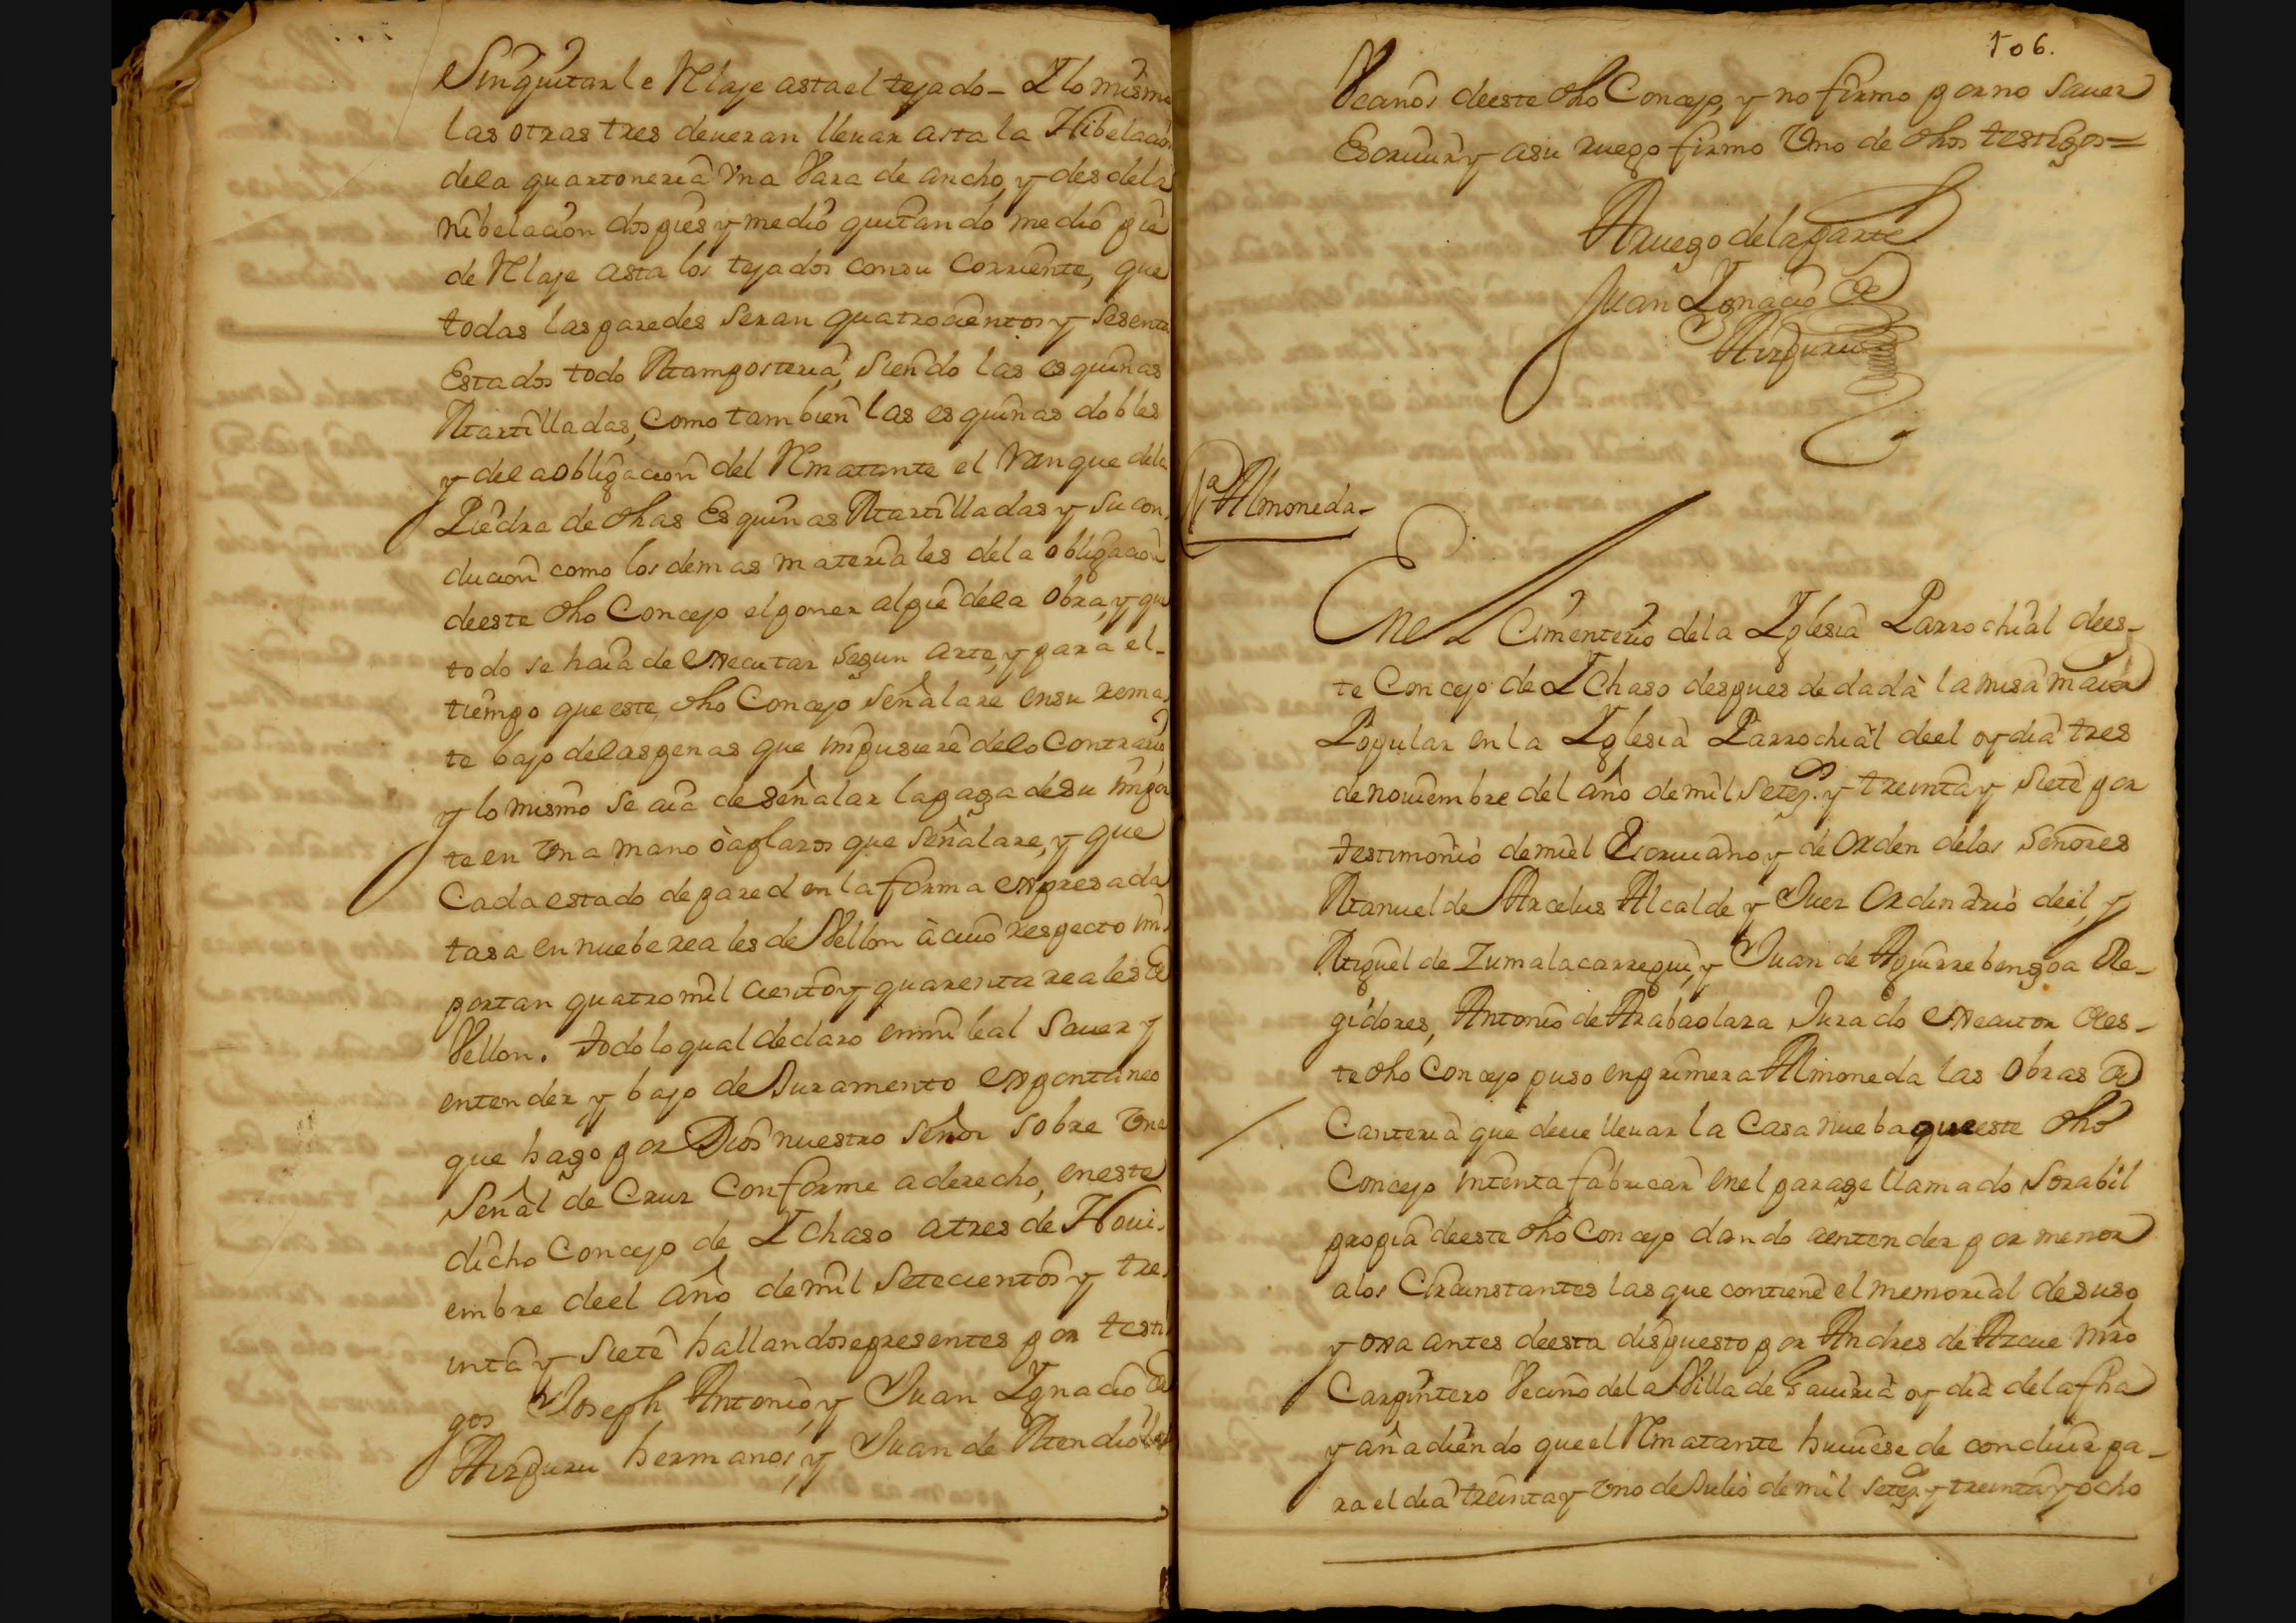 Sin quitarle Relaje asta el tejado - Y lo mismo
las otras tres deveran llevar asta la Nibelacion
dela quartoneria Vna Vara de ancho, y desde la
nibelacion dos pies y medio quitando medio pie
de Relaje asta los tejados con su Corriente, que
todas las paredes seran quatrocientos y Sesenta
Estados todo Mamposteria, siendo las esquinas
Martilladas, Como tambien las esquinas dobles
y dela obligacion del Rematante el Ranque dela
Piedra de dhas Esquinas Martilladas y su con
ducion como los demas materiales dela obligacion
de este dho Concejo el poner al pie dela obra, y que
todo se haia de executar segun arte, y para el
tiempo que este dho Concejo señalare en su rema
te bajo de las penas que impusiere de lo Contrario,
y lo mismo se aia de señalar la paga de su impor
te en Vna mano ò a plazos que señalare, y que
Cada estado de pared en la forma expresada
tasa en nuebe reales de Vellon à cuio respecto im
portan quatro mil ciento y quarenta reales de
Vellon. todo lo qual declaro en mi leal Saver y
entender y bajo de Juramento expontaneo
que hago por Dios nuestro Señor sobre Vna
Señal de Cruz Conforme a derecho, en este
dicho Concejo de Ychaso a tres de Novi
embre de el año de mil Setecientos y tre
inta y Siete hallandose presentes por testi
gos Joseph Antonio, y Juan Ygnacio de
Aizpuru hermanos, y Juan de Mendiola
106.
Vecinos de este dho Concejo, y no firmo por no Saver
Escrivir y a su ruego firmo Vno de dhos testigos =
A ruego de la parte
Juan Ygnacio de
Aizpuru
1ª Almoneda -
En el Cimenterio dela Yglesia Parrochial de es-
te Concejo de Ychaso despues de dada la misa maior
Popular en la Yglesia Parrochial de el oy dia tres
de noviembre del año de mil Setez.s y treinta y Siete por
testimonio de mi el Escrivano y de orden delos Señores
Manuel de Arcelus Alcalde y Juez Ordinario de el, y
Miguel de Zumalacarregui, y Juan de Aguirrebengoa Re-
gidores, Antonio de Arabaolaza Jurado executor des-
te dho Concejo puso en primera Almoneda las Obras de
Canteria que deve llevar la Casa nueba que este dho
Concejo intenta fabricar en el parage llamado Sorabil
propia de este dho Concejo dando aentender por menor
a los Circunstantes las que contiene el memorial de suso
y otra antes de esta dispuesto por Andres de Arcue Mro
Carpintero Vecino dela Villa de Gaviria oy dia dela fha
y añadiendo que el Rematante huviese de concluir pa-
ra el dia treinta y Vno de Julio de mil Setez.s y treinta y ocho